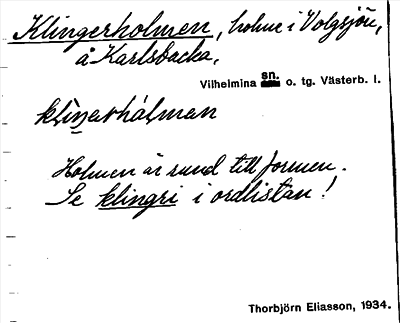 Klingerholmen, holme i Volgsjön,
å Karlsbacka,
Vilhelmina sn. o. tg. Västerb. l.
kliŋərhålman
Holmen är rund till formen.
Se klingri i ordlistan!
Thorbjörn Eliasson, 1934.